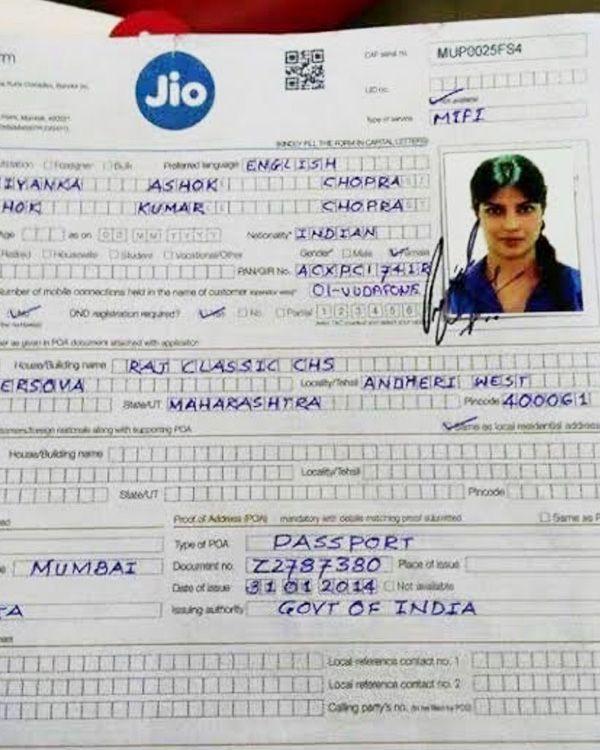 rm
Jio
CAF serial no. MUP0025FS4
UID no.
Not available
Type of service MIFI
KINDLY FILL THE FORM IN CAPITAL LETTERS
Foreigner Bulk Preferred language ENGLISH
IYANKA ASHOK CHOPRA
HOK KUMAR CHOPRA
Age as on DD MM YYYY Nationality INDIAN
Retired Housewife Student Vocational/Other Gender Male Female
PAN/GIR No. ACXPC1741R
Number of mobile connections held in the name of customer 01-VODAFONE
No DND registration required? Yes No Partial 1 2 3 4 5 6
as given in POA document attached with application
House/Building name RAJ CLASSIC CHS
ERSOVA Locality/Tehsil ANDHERI WEST
State/UT MAHARASHTRA Pincode 400061
foreign nationals along with supporting POA Same as local residential address
House/Building name
Locality/Tehsil
State/UT Pincode
Proof of Address (POA) mandatory with details matching proof submitted Same as P
Type of POA PASSPORT
MUMBAI Document no. Z2787380 Place of issue
Date of issue 31 01 2014 Not available
TA Issuing authority GOVT OF INDIA
Local reference contact no. 1
Local reference contact no. 2
Calling party's no.